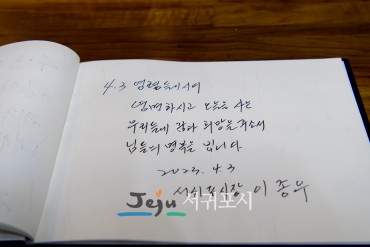 4.3 영령들이시여
영면하시고 오늘을 사는
우리들에 삶과 희망을 주소서
님들의 명복을 빕니다
2023. 4. 3
서귀포시장 이종우
Jeju 서귀포시